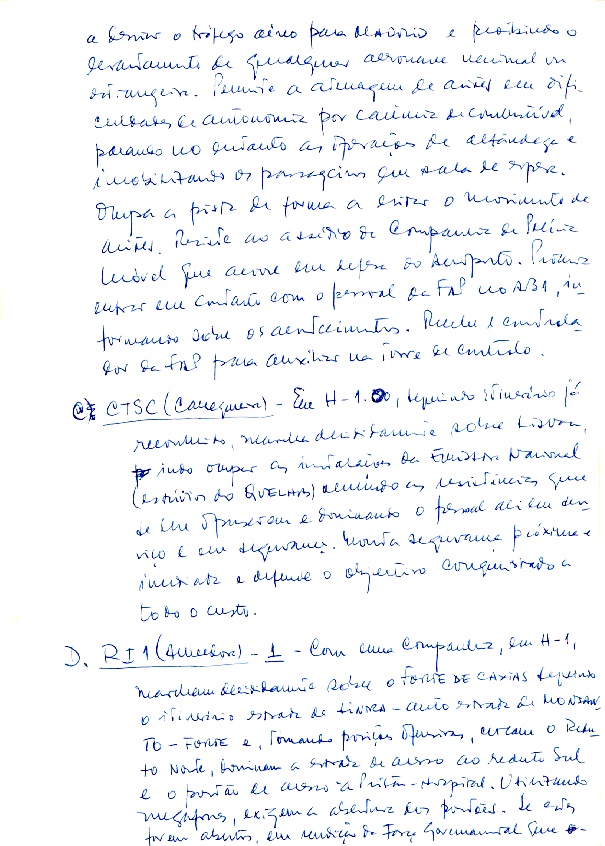 a desviar o tráfego aéreo para MADRID e proibindo o
levantamento de qualquer aeronave nacional ou
estrangeira. Permite a aterragem de aviões em difi-
culdades de autonomia por carência de combustível,
parando no entanto as operações de alfândega e
imobilizando os passageiros em sala de espera.
Ocupa a pista de forma a evitar o movimento de
aviões. Resiste ao assédio da Companhia de Polícia
Móvel que acorre em defesa do Aeroporto. Procura
entrar em contacto com o pessoal da FAP no AB1, in-
formando sobre os acontecimentos. Recebe 1 controla-
dor da FAP para auxiliar na Torre de controlo.
CTSC (Carregueira) - Em H-1.00, seguindo itinerário já
reconhecido, marcha decididamente sobre Lisboa,
indo ocupar as instalações da Emissora Nacional
(estúdios do QUELHAS) anulando as resistências que
se lhe opuserem e dominando o pessoal ali em ser-
viço e em segurança. Monta segurança próxima e
imediata e defende o objectivo conquistado a
todo o custo.
D. RI1 (Amadora) - 1 - Com uma Companhia, em H-1,
marcham decididamente sobre o FORTE DE CAXIAS seguindo
o itinerário estrada de SINTRA - auto estrada de MONSAN-
TO - FORTE e, tomando posições ofensivas, cercam o Redu-
to Norte, dominam a estrada de acesso ao reduto Sul
e o portão de acesso à Prisão-Hospital. Utilizando
megafones, exigem a abertura dos portões. Se estes
forem abertos, em rendição da Força Governamental que